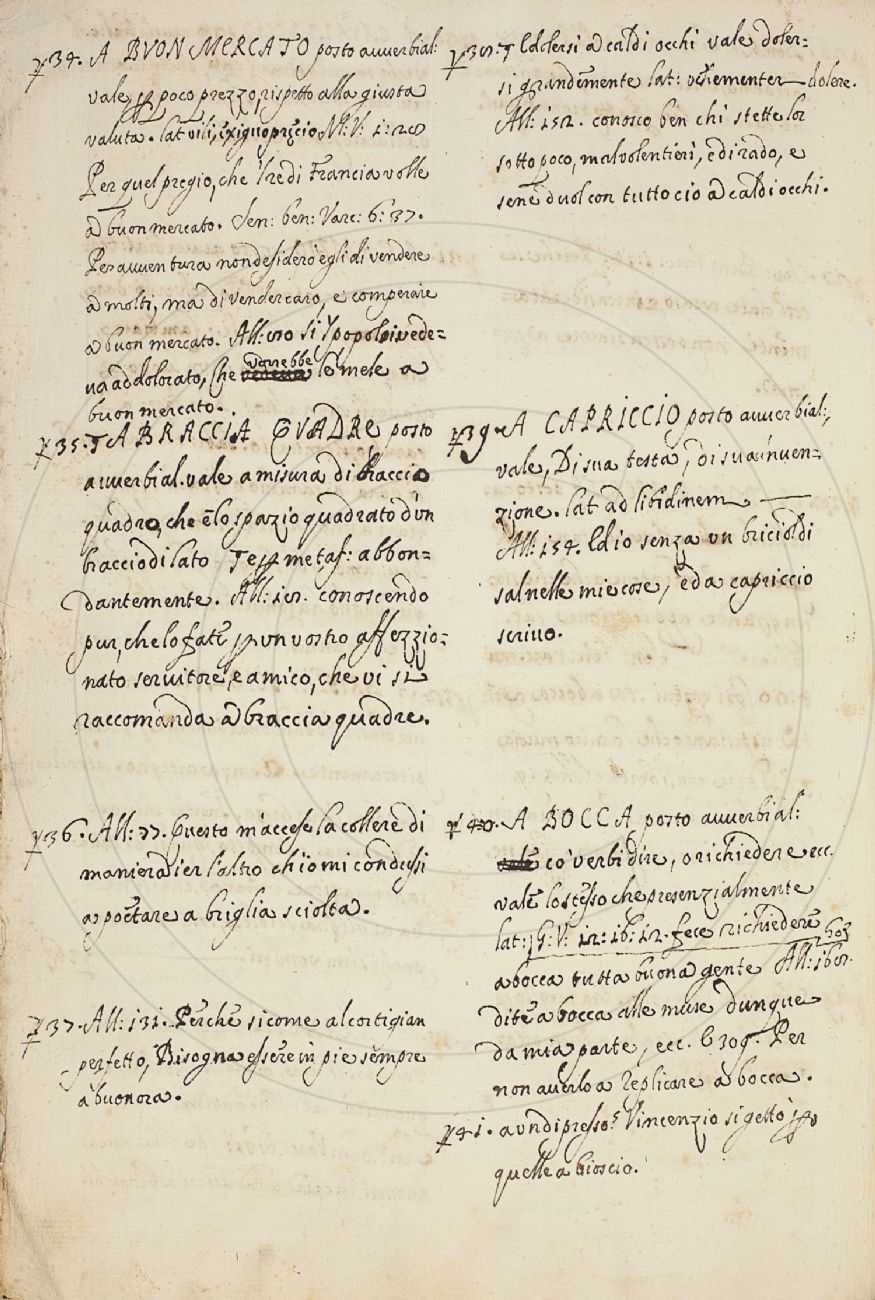 34. A BVON MERCATO posto auuerbial:
vale p poco prezzo, rispetto alla giusta
valuta. lat vili, exiguo precio M: V: 1: 28
Per quel pregio, che 'l re di Francia volle
a buon mercato. Sen: ben: Varc: 6: 37.
Per auuentura non desiderò egli di vendere
a molti, ma di vender caro, e comperare
a buon mercato. All: 170 si 'l popolo vede=
ua addolorato, che vorrebbe le mele a
buon mercato.
35. T A BRACCIA QVADRE posto
auuerbial. vale a misura di braccio
quadro, che è lo spazio quadrato d'un
braccio di lato T e p metaf: abbon=
dantemente. All: 107. conoscendo
pur, che lo fate p un vostro affezzio=
nato seruitore, e amico, che vi si
raccomanda a braccia quadre.
36. All: 77. Questo m'accese la collera di
maniera ier l'altro ch'io mi condussi
a poetare a briglia sciolta.
37. All: 131. Perche si come al cortigian
perfetto, Bisogna essere in pie sempre
a buonora.
38. T E dolersi a caldi occhi vale doler=
si grandemente lat: vehementer dolere.
All: 152. conosco ben chi stette lor
sotto poco, mal volentieri, e di rado, e
se ne duol con tutto cio a caldi occhi.
39. A CAPRICCIO posto auuerbial:,
vale, Di sua testa, di sua inuen=
zione. lat ad libidinem
All: 154. Ed io senza un bricciol di
sal nelle mie cose, e da capriccio
scriuo.
40. A BOCCA posto auuerbial:
co' verbi dire, o richiedere ecc.
vale lo stesso che presenzialmente
lat: G: V: 12: 16: 12. fece richiedere
a bocca tutta buona gente All: 167.
dite a bocca alle muse dunque
da mia parte, ecc. E 309. Per
non auerlo a replicare a bocca.
41. a un di presso. Vincenzio si gettò p
quelle a bioscio.